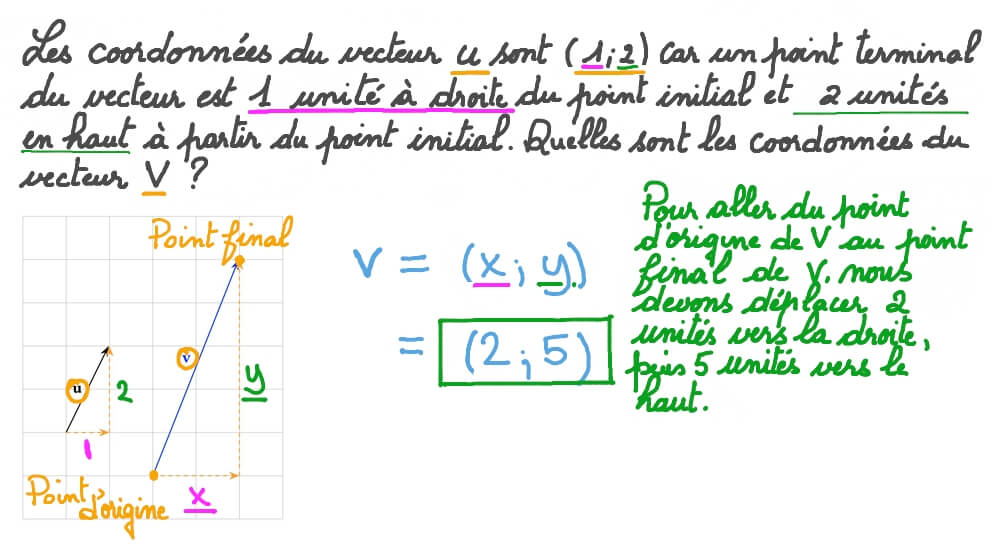 Les coordonnées du vecteur u sont (1;2) car un point terminal
du vecteur est 1 unité à droite du point initial et 2 unités
en haut à partir du point initial. Quelles sont les coordonnées du
vecteur V ?
Point final
u
2
1
v
y
x
Point d'origine
V = (x; y)
= (2;5)
Pour aller du point
d'origine de V au point
final de V. nous
devons déplacer 2
unités vers la droite,
puis 5 unités vers le
haut.